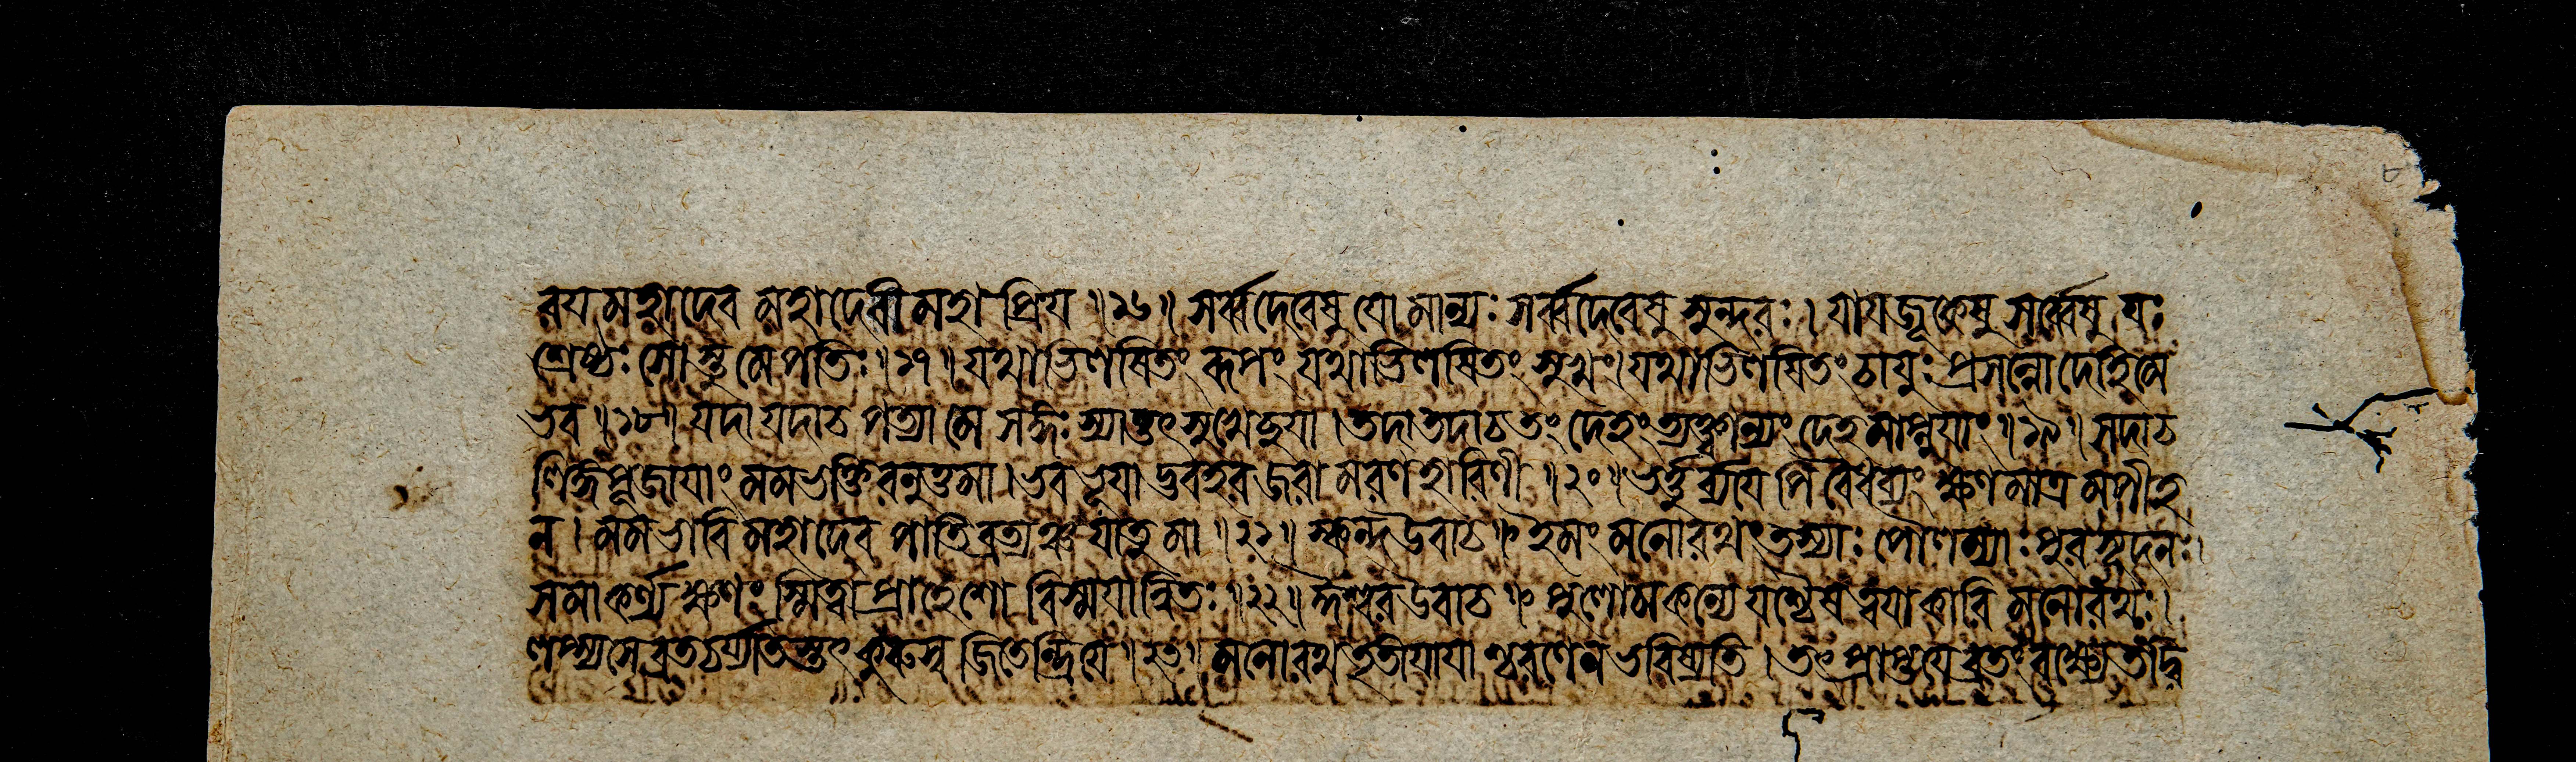 বয মহাদেব মহাদেবীমহাপ্রিয ॥১৬॥ সর্ব্বদেবেষু যো মান্যঃ সর্ব্বদেবেষু সুন্দরঃ । যাযজূকেষু সর্ব্বেষু যঃ
শ্রেষ্ঠঃ সোস্তু মে পতিঃ ॥১৭॥ যথাভিলষিতং রূপং যথাভিলষিতং সুখং । যথাভিলষিতং চাযুঃ প্রসন্নো দেহি মে
ভব ॥১৮॥ যদা যদা চ পত্যা মে সঙ্গঃ স্যাত্তৎ সুখেচ্ছযা । তদা তদা চ তং দেহং ত্যক্ত্বান্যং দেহমাপ্নুযাং ॥১৯॥ সদা চ
লিঙ্গপূজাযাং মম ভক্তিরনুত্তমা । ভব ভূযাদ্ভবহর জরামরণহারিণী ॥২০॥ ভর্ত্তুর্ব্যযেপি বৈধব্যং ক্ষণমাত্রমপীহ
ন । মম ভাবি মহাদেব পাতিব্রত্যঞ্চ যাতু মা ॥২১॥ স্কন্দ উবাচ ॥ ইমং মনোরথং তস্যাঃ পৌলোম্যাঃ পুরসূদনঃ ।
সমাকর্ণ্য ক্ষণং স্মিত্বা প্রাহেশো বিস্মযান্বিতঃ ॥২২॥ ঈশ্বর উবাচ ॥ পুলোমকন্যে যশ্চৈষ ত্বযাকারি মনোরথঃ ।
লপ্স্যসে ব্রতচর্য্যাতস্তৎ কুরুষ্ব জিতেন্দ্রিযে ॥২৩॥ মনোরথতৃতীযাযাশ্চরণেন ভবিষ্যতি । তৎপ্রাপ্তযে ব্রতং বক্ষ্যে তদ্বি